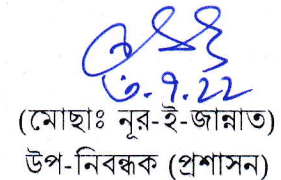 ৩.৭.২২
(মোছাঃ নূর-ই-জান্নাত)
উপ-নিবন্ধক (প্রশাসন)